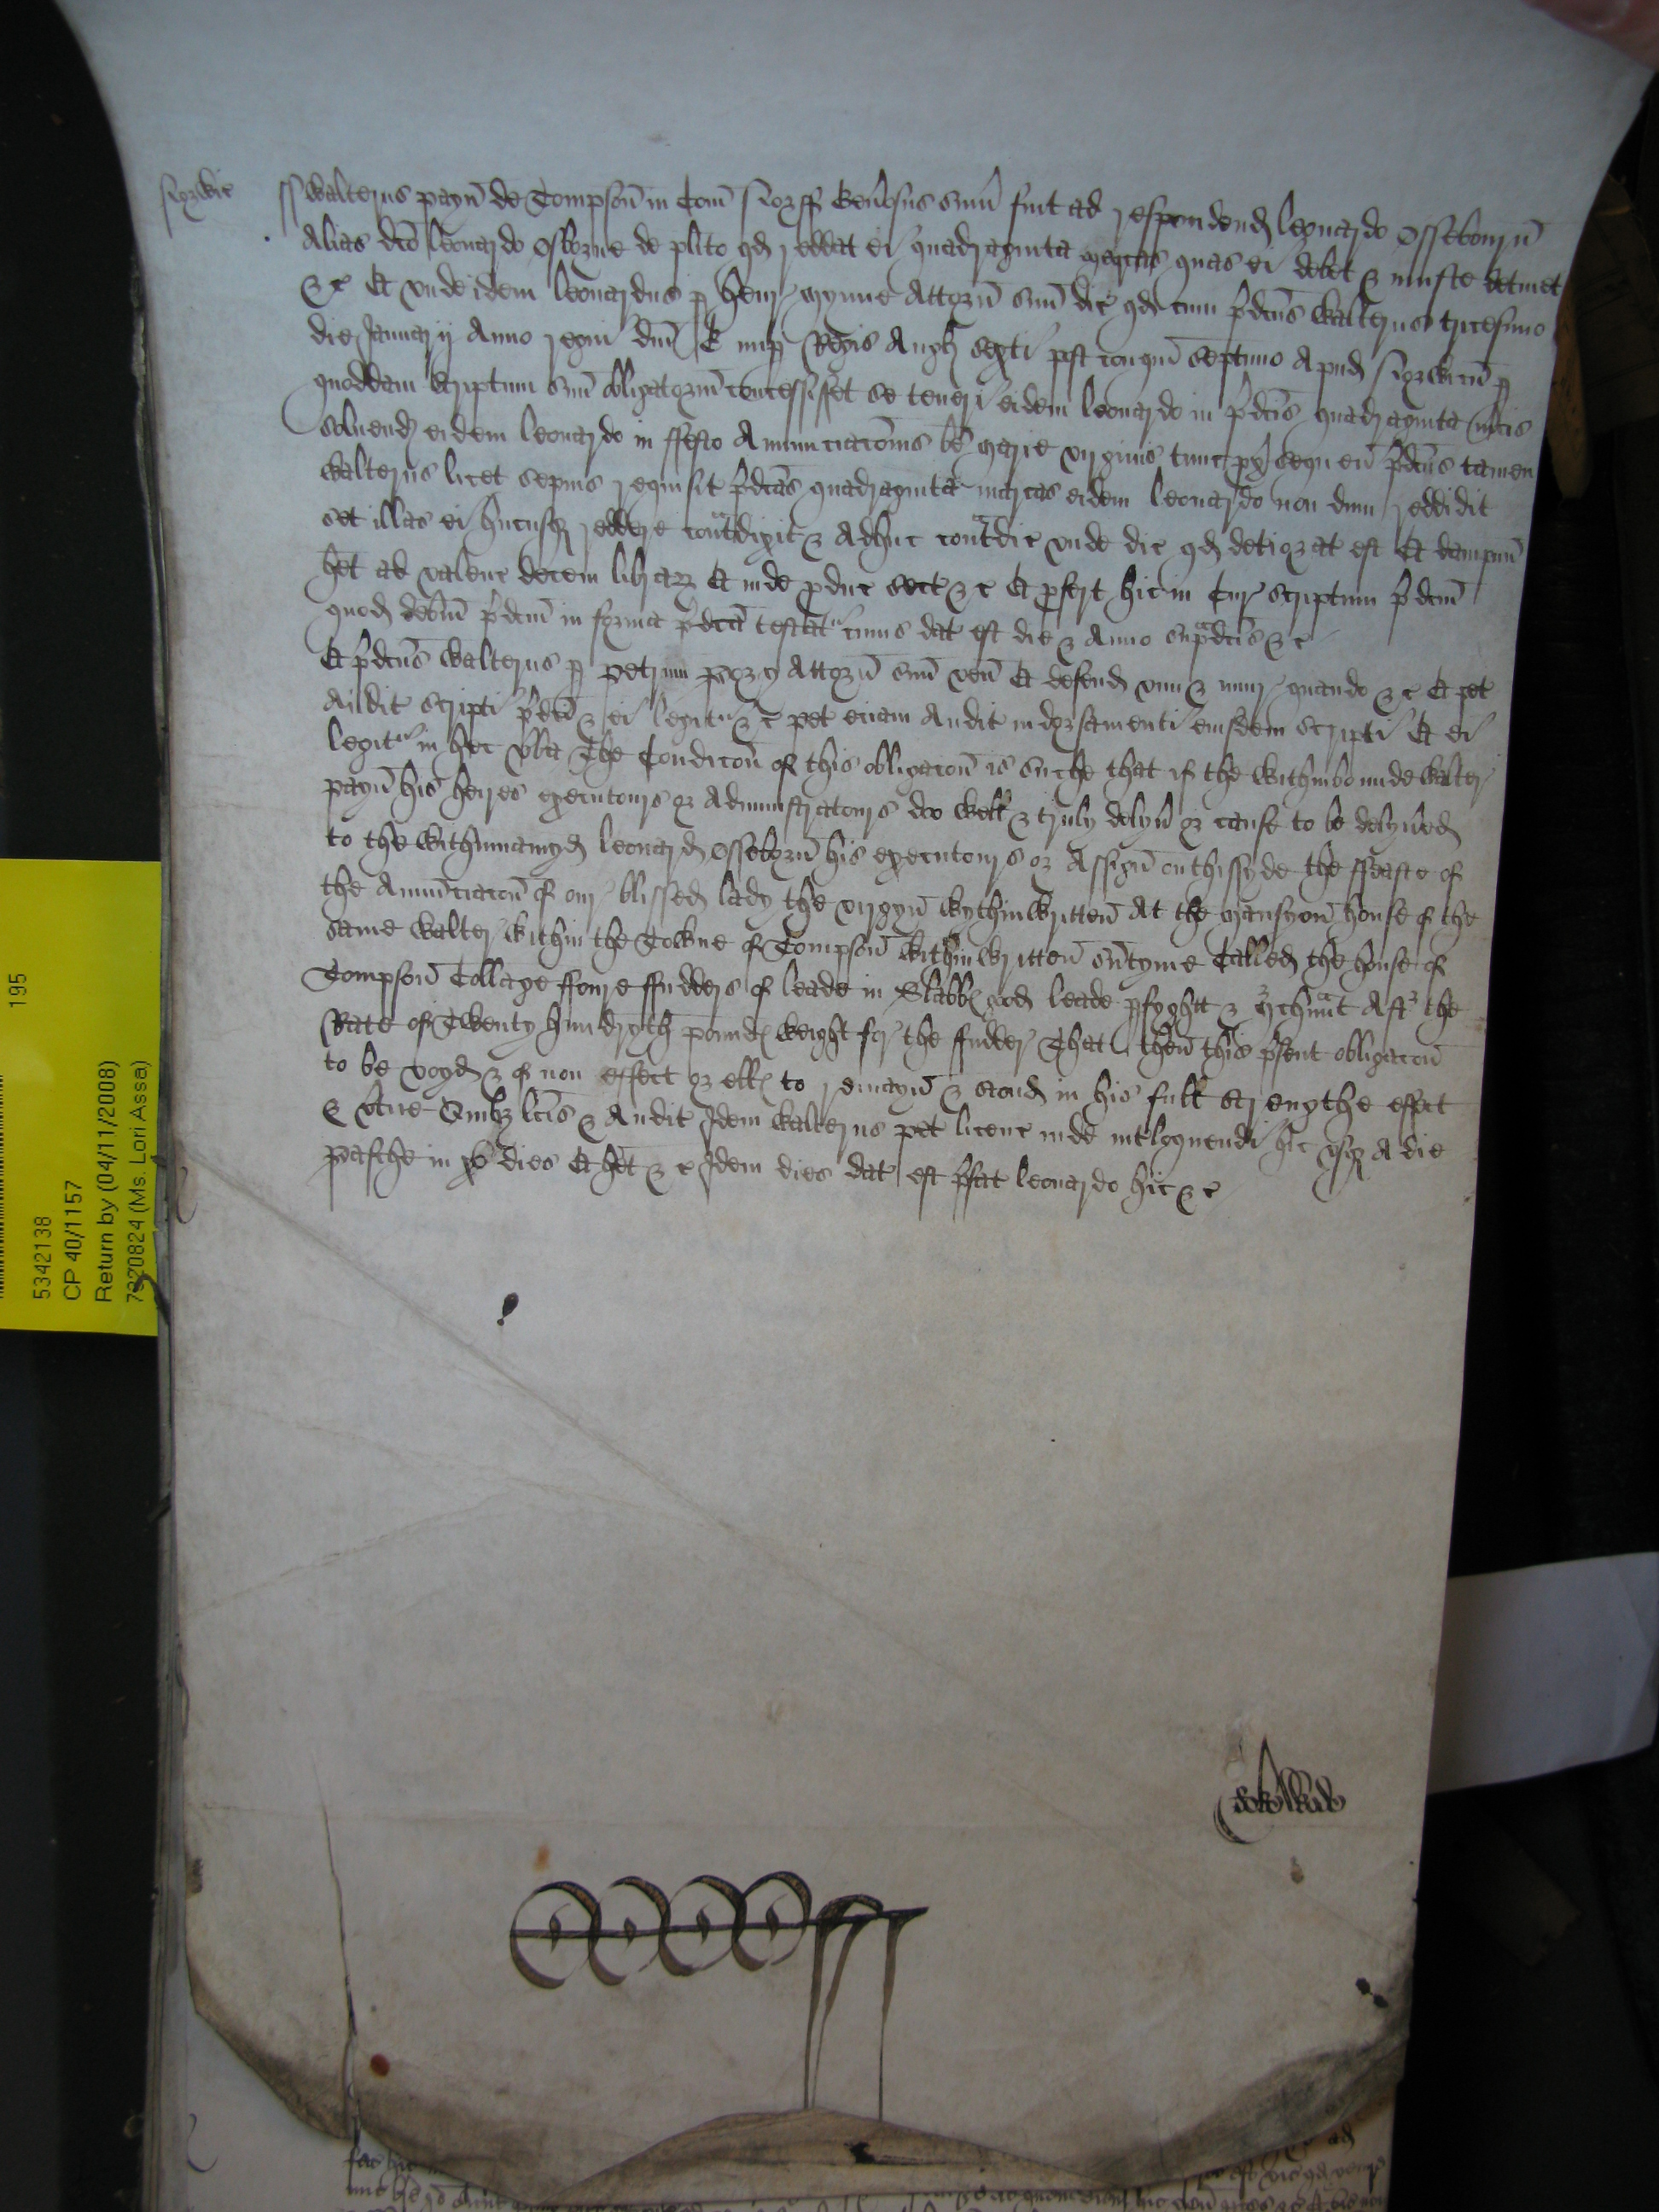 Norwic
ss Walterus Payn̄ de Tompson̄ in Com̄ Norff Gen̄osus sum̄ fuit ad respondend leonardo Ossebourn̄
alias dc̄o leonardo Osborne de pl̄ito qd reddat ei quadraginta marcas quas ei debet & iniuste detinet
&c Et vnde idem leonardus p Henr Wynne Attorn̄ suū dic qd cum p̄dc̄us Walterus tricesimo
die Januarij Anno regni dn̄i E nup Regis Angl̄ sexti post conqm̄ septimo apud Norwicū p
quoddam scriptum suū obligatoriū concessisset se teneri eidem leonardo in p̄dc̄is quadraginta m̄cis
soluend eidem leonardo in ffesto Annunciac̄onis be Marie virginis tunc px̄ sequen̄ p̄dc̄us tamen
Walterus licet sepius requisit p̄dc̄as quadraginta marcas eidem leonardo non dum reddidit
set illas ei hucusq reddere cont̄dixit & adhuc cont̄dic vnde dic qd deteriorat est Et dampnū
h̄et ad valenc decem librar Et inde p̄duc sect &c Et p̄fert hic in Cur scriptum p̄dc̄m
quod debitū p̄dc̄m in forma p̄dc̄a testat cuius dat est die & Anno sup̄dc̄is &c
Et p̄dc̄us Walterus p Petrum Attorn̄ suū ven̄ Et defend vim & iniur quando &c Et pet
audit scripti p̄dc̄i & ei legit &c pet eciam audit indorsamenti eiusdem scripti Et ei
legit in hec v̄ba The Condicon̄ of this obligacon̄ is suche that if the Withinbounde Walter
Payn̄ his heires executours or Administratours doo well & truly delyū or cause to be delyūed
to the Withinnamyd leonard Osseborn̄ his executours or Assign̄ on thissyde the ffeaste of
the Annūciacon̄ of our blissed lady the virgyn̄ Wythinwritten̄ At the Mansyon̄ house of the
same Walter Within the Towne of Tompson̄ Withinwritten̄ sūtyme Called the house of
Tompson̄ Collage ffoure ffudders of leade in Slabbs good leade pfyghtt & m̄chaunt Aft the
Rate of Twenty hundryth pounds Weight for the ffudder That then̄ this p̄sent obligacon̄
to be voyd & of non effect or ells to remayn̄ & stand in his full strengthe effect
& v̄tue Quib lc̄is & audit Idem Walterus pet licenc inde int̄loquendi hic vsq a die
Pasche in xv dies Et h̄et &c Idem dies dat est p̄fat leonardo hic &c
195
5342138
CP 40/1157
Return by (04/11/2008)
7320824 (Ms. Lori Assa)